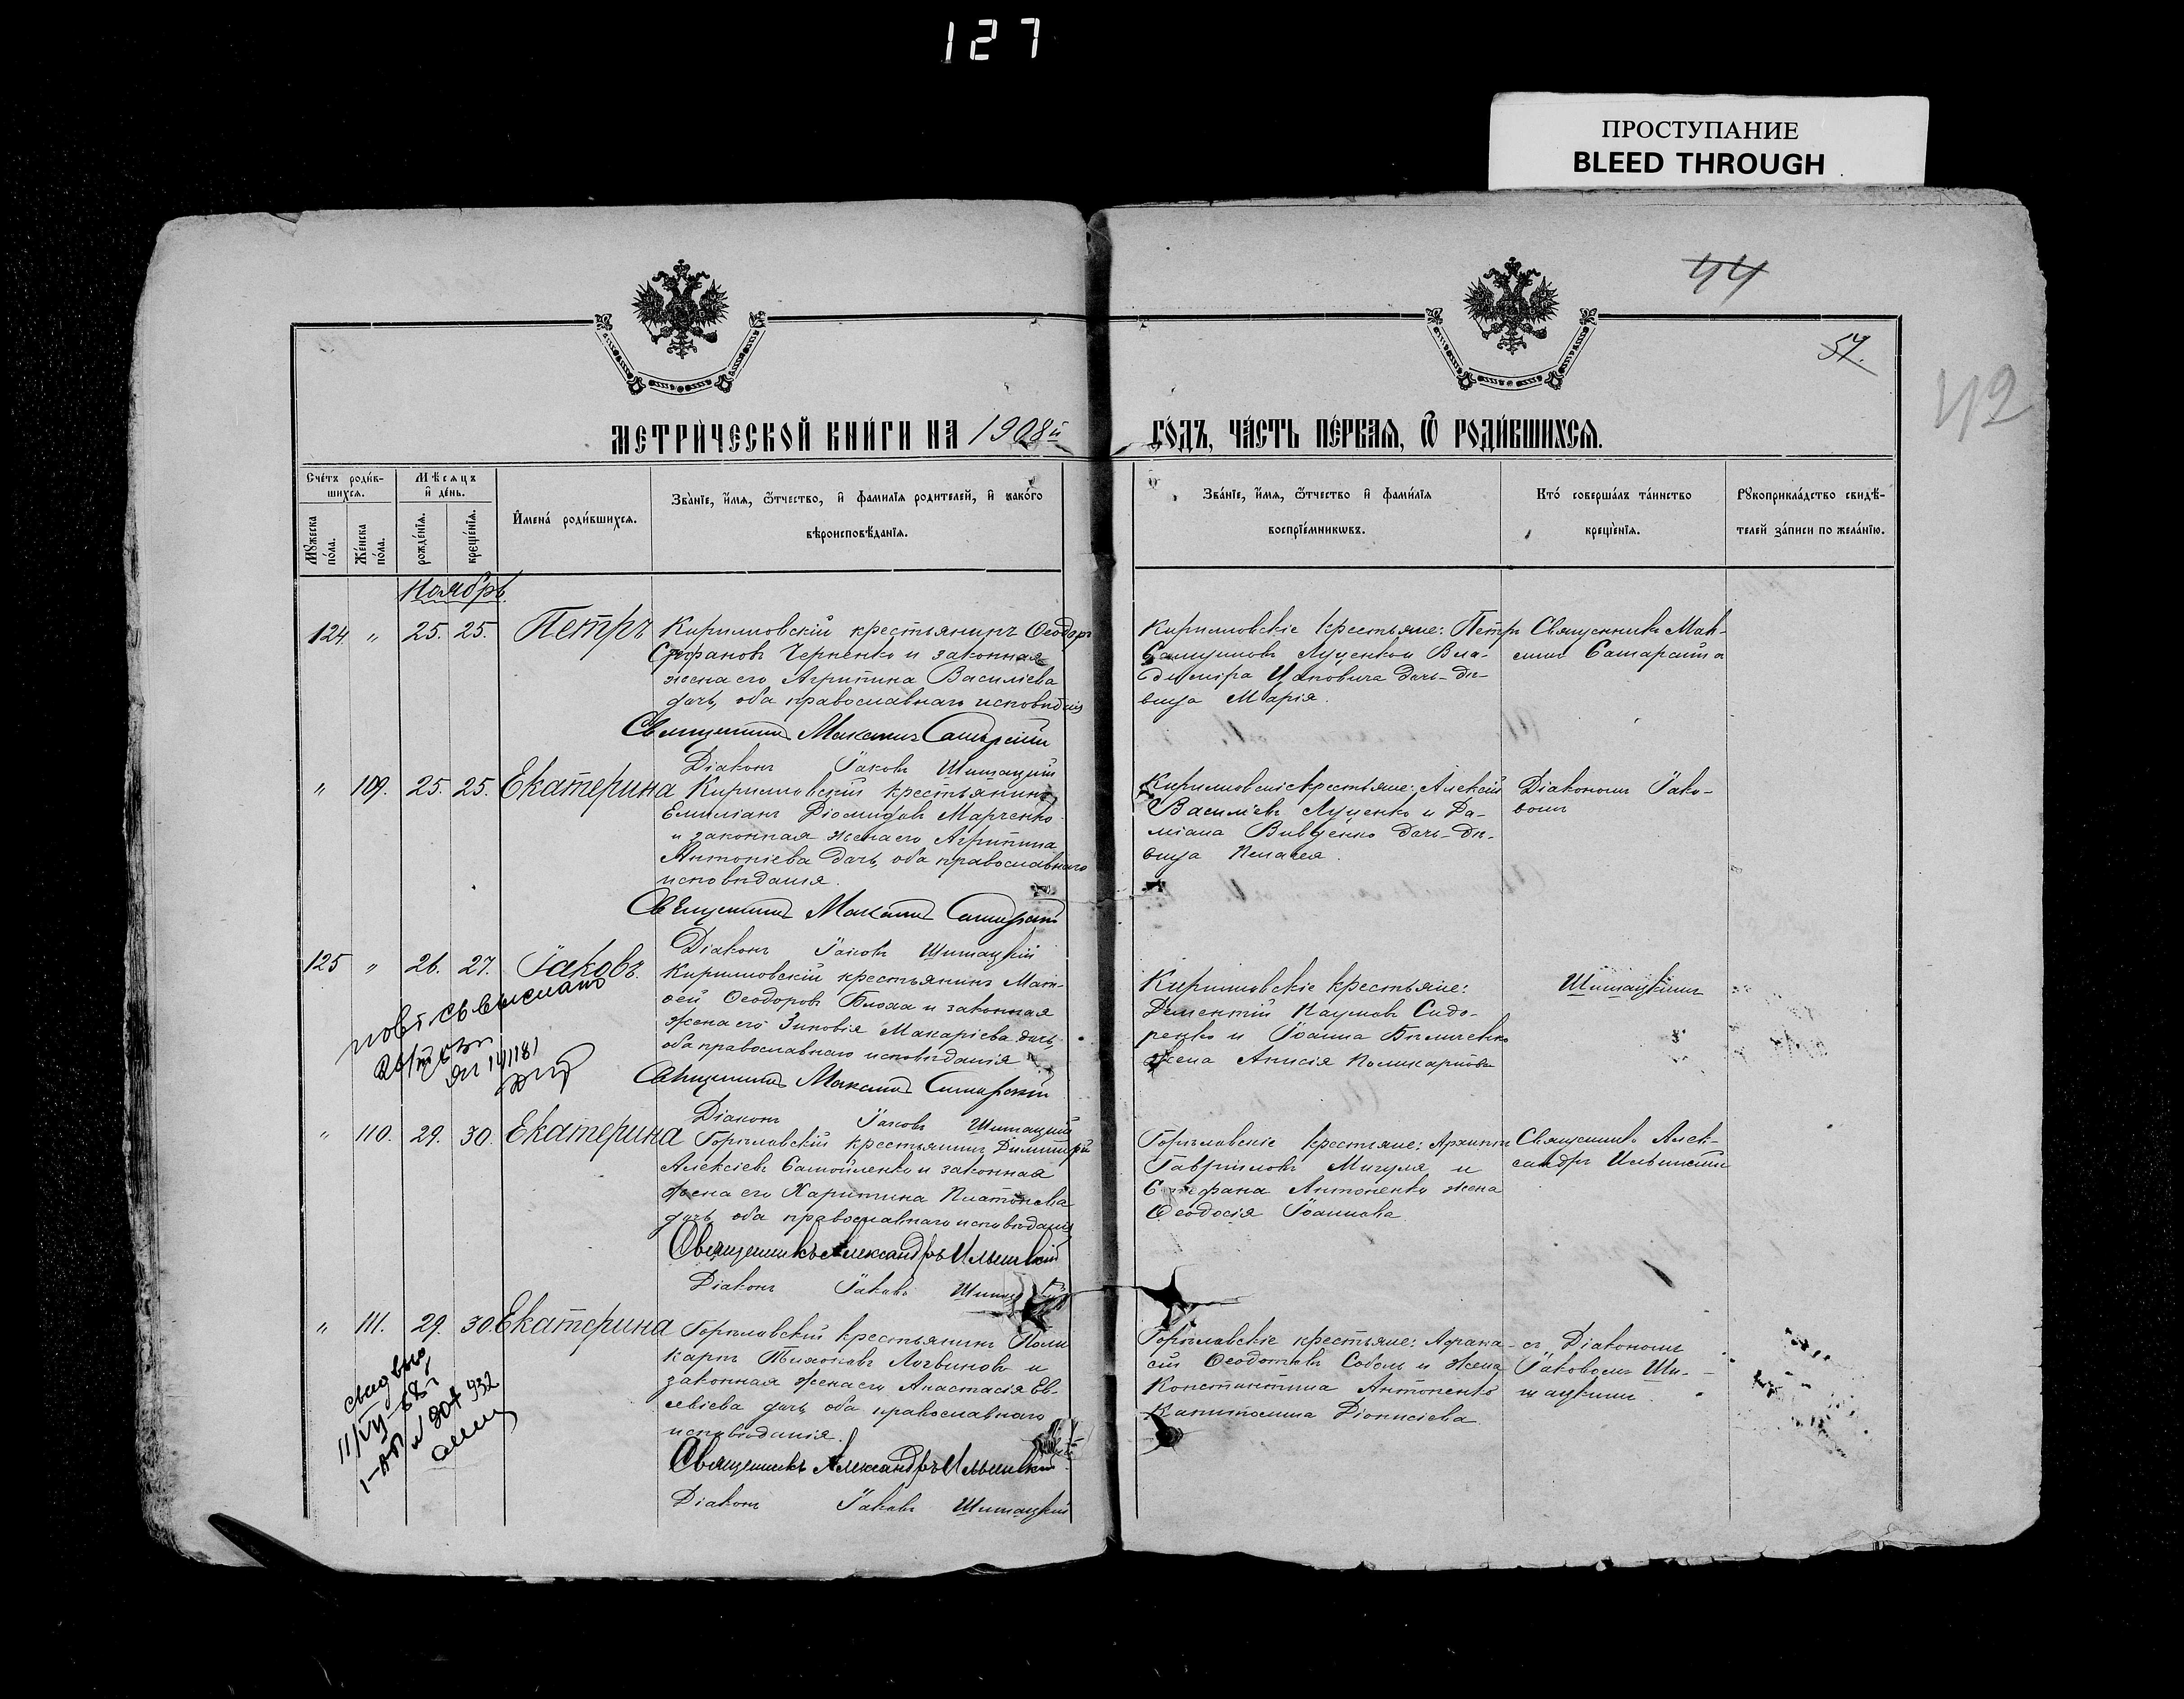 127
ПРОСТУПАНИЕ
BLEED THROUGH
44
57.
42
МЕТРИ́ЧЕСКОЙ КНИ́ГИ НА 1908й
ГО́ДЪ, ЧА́СТЬ ПЕ́РВАѦ, Ѿ РОДИ́ВШИХСѦ.
Сче́тъ роди́в-
шихсѧ.
Мꙋжеска по́ла.
Же́нска по́ла.
Мѣ́сяцъ
и҆ де́нь.
рожде́нїѧ.
креще́нїѧ.
И҆мена̀ роди́вшихсѧ.
Зва́нїе, и҆́мѧ, ѻ҆́тчество, и҆ фами́лїѧ родителей, и҆ како́го
вѣроисповѣ́данїѧ.
Зва́нїе, и҆́мѧ, ѻ҆́тчество и҆ фами́лїѧ
воспрїе́мникѡвъ.
Кто́ соверша́лъ та́инство
креще́нїѧ.
Рꙋкоприкла́дство свидѣ́-
телей за́писи по жела́нїю.
Ноябрь
124 " 25. 25. Петръ
Кирилловскій крестьянинъ Ѳеодоръ
Стефановъ Черненко и законная
жена его Агрипина Василіева
дочь, оба православнаго исповѣданія
Священникъ Максимъ
Діаконъ Іаковъ Шишацкій
Кирилловскіе крестьяне: Петръ
Луценко и Вла-
диміра дочь-дѣ-
вица Марія.
Священникъ Мак-
симъ
" 109. 25. 25. Екатерина
Кирилловскій крестьянинъ
Емиліанъ Діомидовъ Марченко
и законная жена его Агрипина
Антоніева дочь, оба православнаго
исповѣданія.
Священникъ Максимъ
Діаконъ Іаковъ Шишацкій
Кирилловскіе крестьяне: Алексій
Василіевъ Луценко и Да-
міана Вивденко дочь-дѣ-
вица Пелагея.
Діакономъ Іако-
вомъ
125 " 26. 27. Іаковъ.
Кирилловскій крестьянинъ Мат-
ѳей Ѳеодоровъ Блоха и законная
жена его Зиновія Макаріева дочь,
оба православнаго исповѣданія
Священникъ Максимъ
Діаконъ Іаковъ Шишацкій
Кирилловскіе крестьяне:
Дементій Наумовъ Сидо-
ренко и Іоанна
жена Анисія Поликарпова
Шишацкимъ
" 110. 29. 30. Екатерина
крестьянинъ Димитрій
Алексіевъ Самойленко и законная
жена его Харитина Платонова
дочь, оба православнаго исповѣданія
Священникъ Александръ Ильинскій
Діаконъ Іаковъ
крестьяне: Архипъ
Гавріиловъ Мигуля и
Стефана Антоненко жена
Ѳеодосія Іоаннова
Священникъ Алек-
сандръ Ильинскій
" 111. 29. 30. Екатерина
крестьянинъ Поли
карпъ Тихоновъ Логвиновъ и
законная жена его Анастасія Ев-
дочь, оба православнаго
исповѣданія.
Священникъ Александръ Ильинскій
Діаконъ Іаковъ Шишацкій
крестьяне: Аѳана-
сій Ѳеодотовъ Соболь и жена
Константина Антоненко
Капитолина Діонисіева.
съ Діакономъ
Іаковомъ Ши-
шацкимъ.